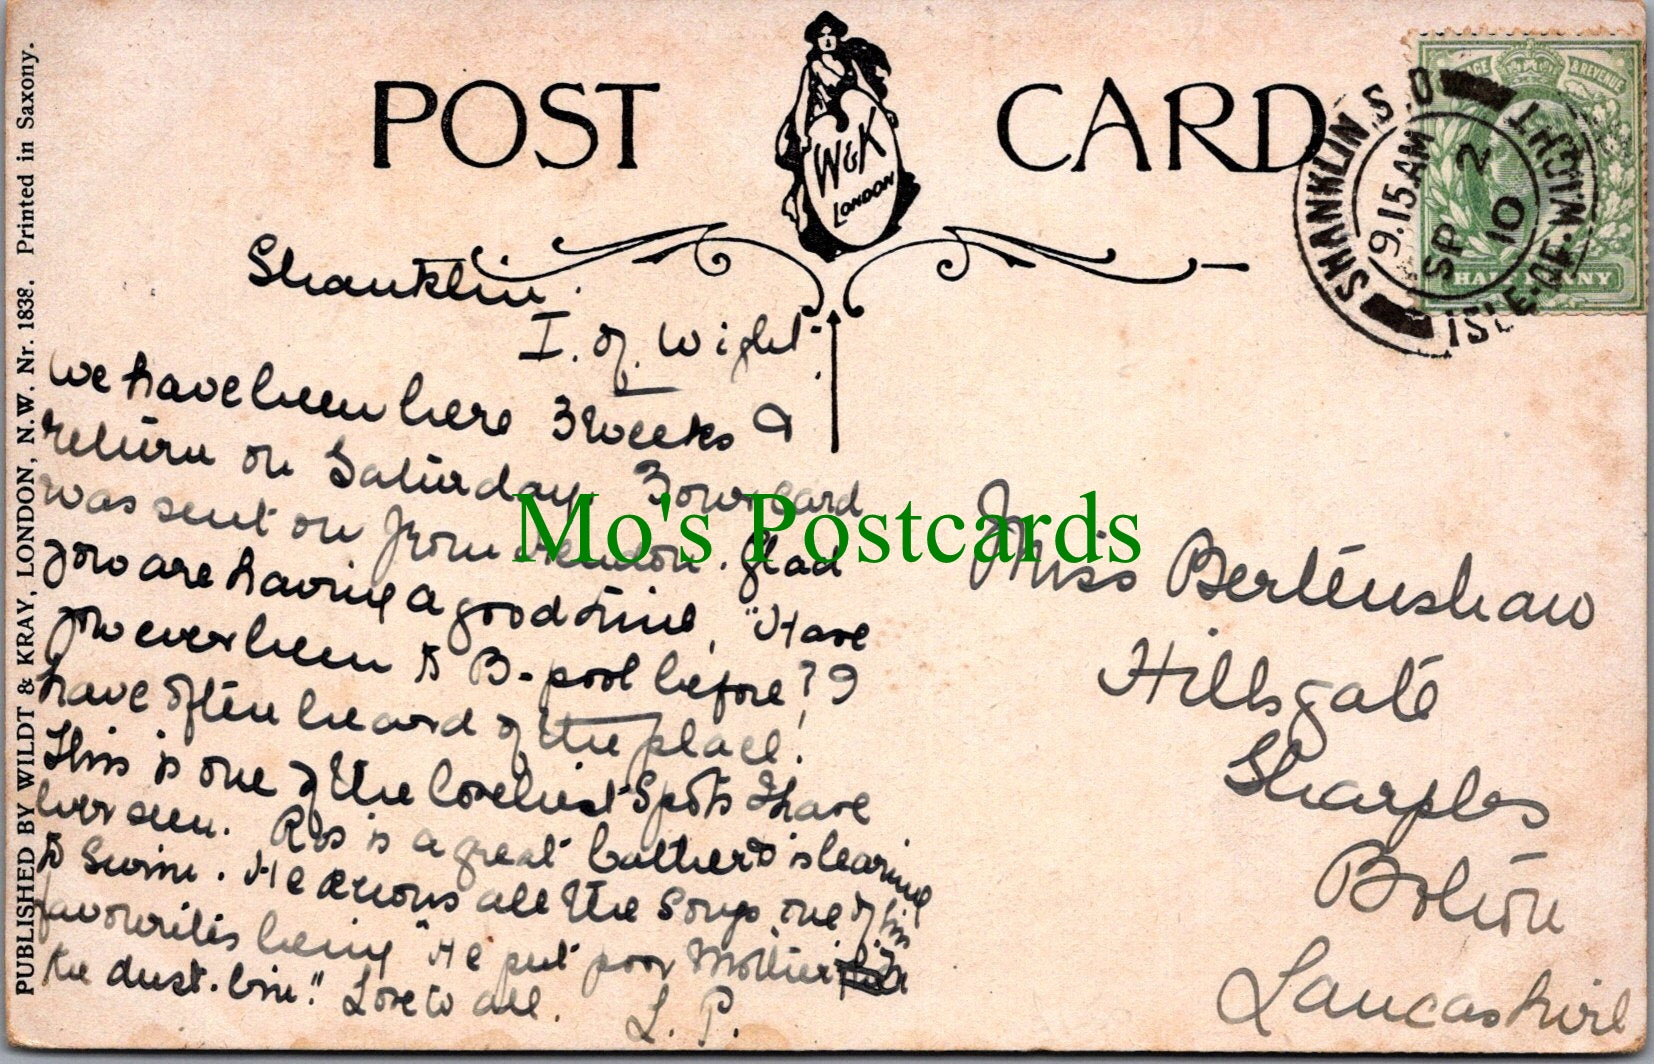 POST CARD
W&K
LONDON
SHANKLIN S.O
ISLE-OF-WIGHT
9.15AM
SP 2
10
& REVENUE
HALFPENNY
PUBLISHED BY WILDT & KRAY, LONDON, N.W. Nr. 1838. Printed in Saxony.
Shanklin.
I. of Wight.
We have been here 3 weeks &
return on Saturday. Your card
was sent on from Hendon. Glad
you are having a good time, "Have
you ever been to B-pool before? I
have often heard of the place!
This is one of the loveliest Spots I have
ever seen. is a great bather & is learning
to Swim. He knows all the Songs one of his
favourites being "He put poor Mother in
the dust-bin." Love to all.
L. P.
Miss Bertenshaw
Hillsgate
Sharples
Bolton
Lancashire
Mo's Postcards